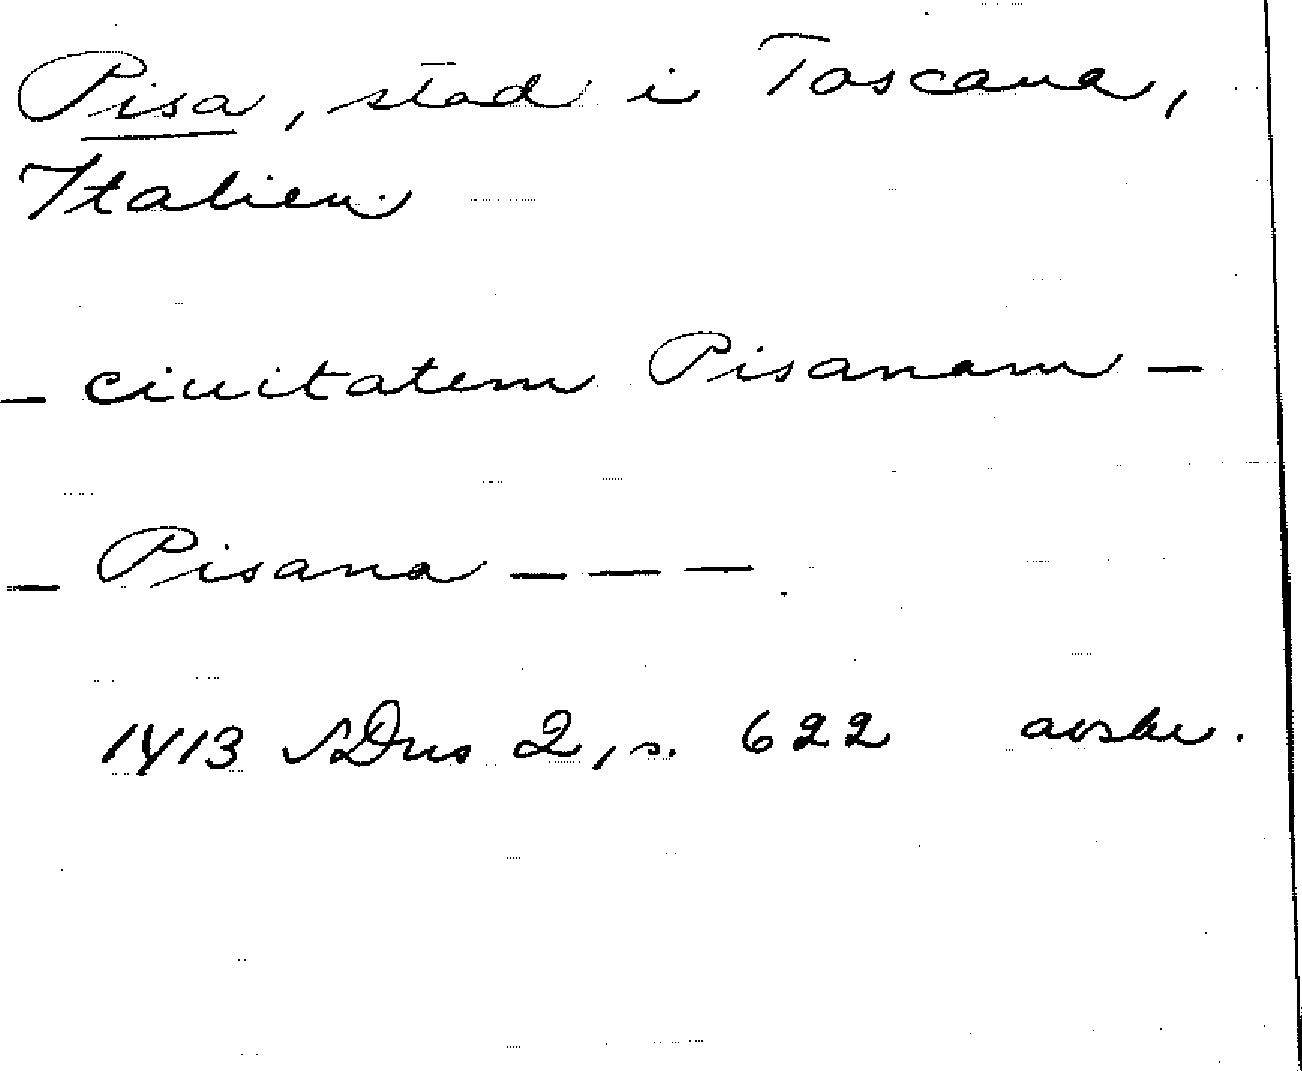 Pisa, stad i Toscana,
Italien.
- ciuitatem Pisanam -
- Pisana - - -
1413 SDns 2, s. 622 avskr.